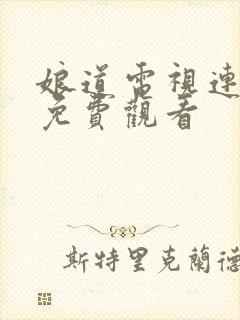 娘道電視連
免費觀看
斯特里克蘭德